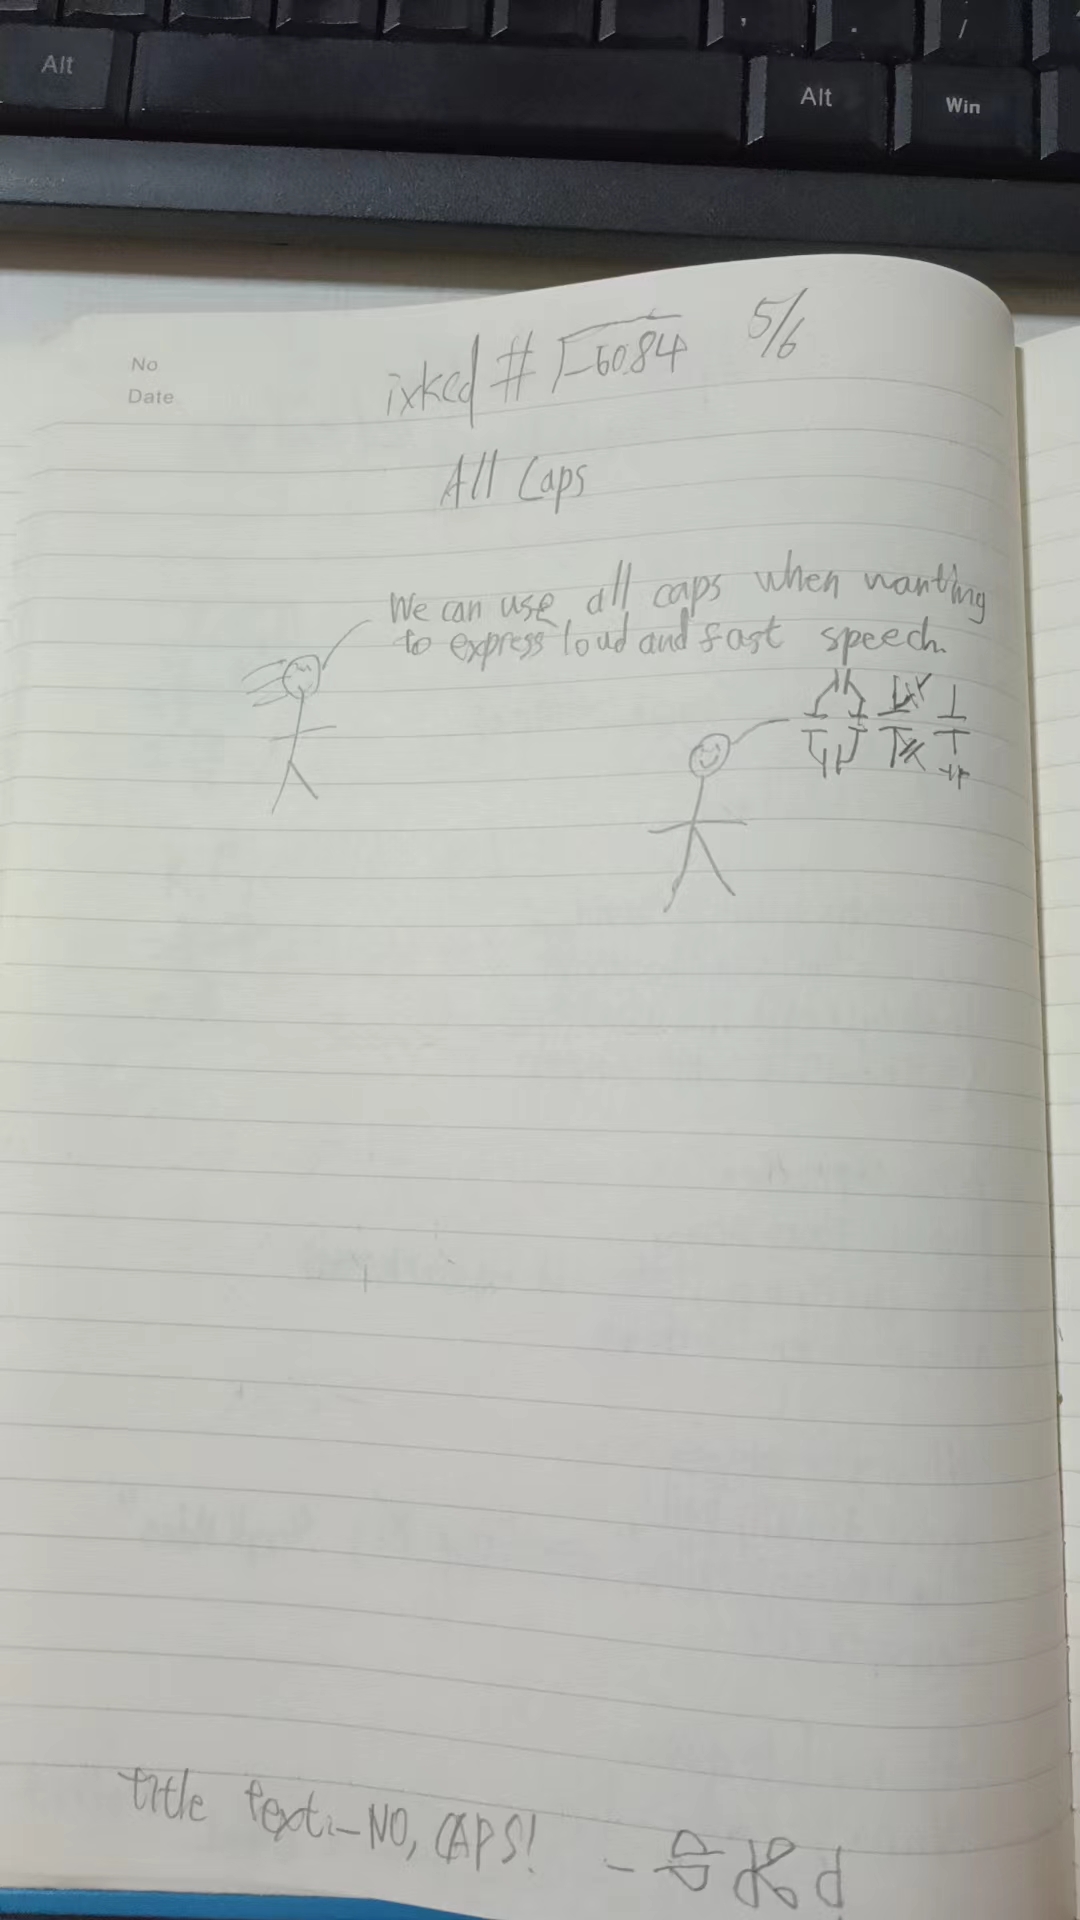 Alt
Alt
Win
,
.
/
No
Date
5/6
All Caps
We can use all caps when wanting
to express loud and fast speech.
title text:—NO, CAPS!